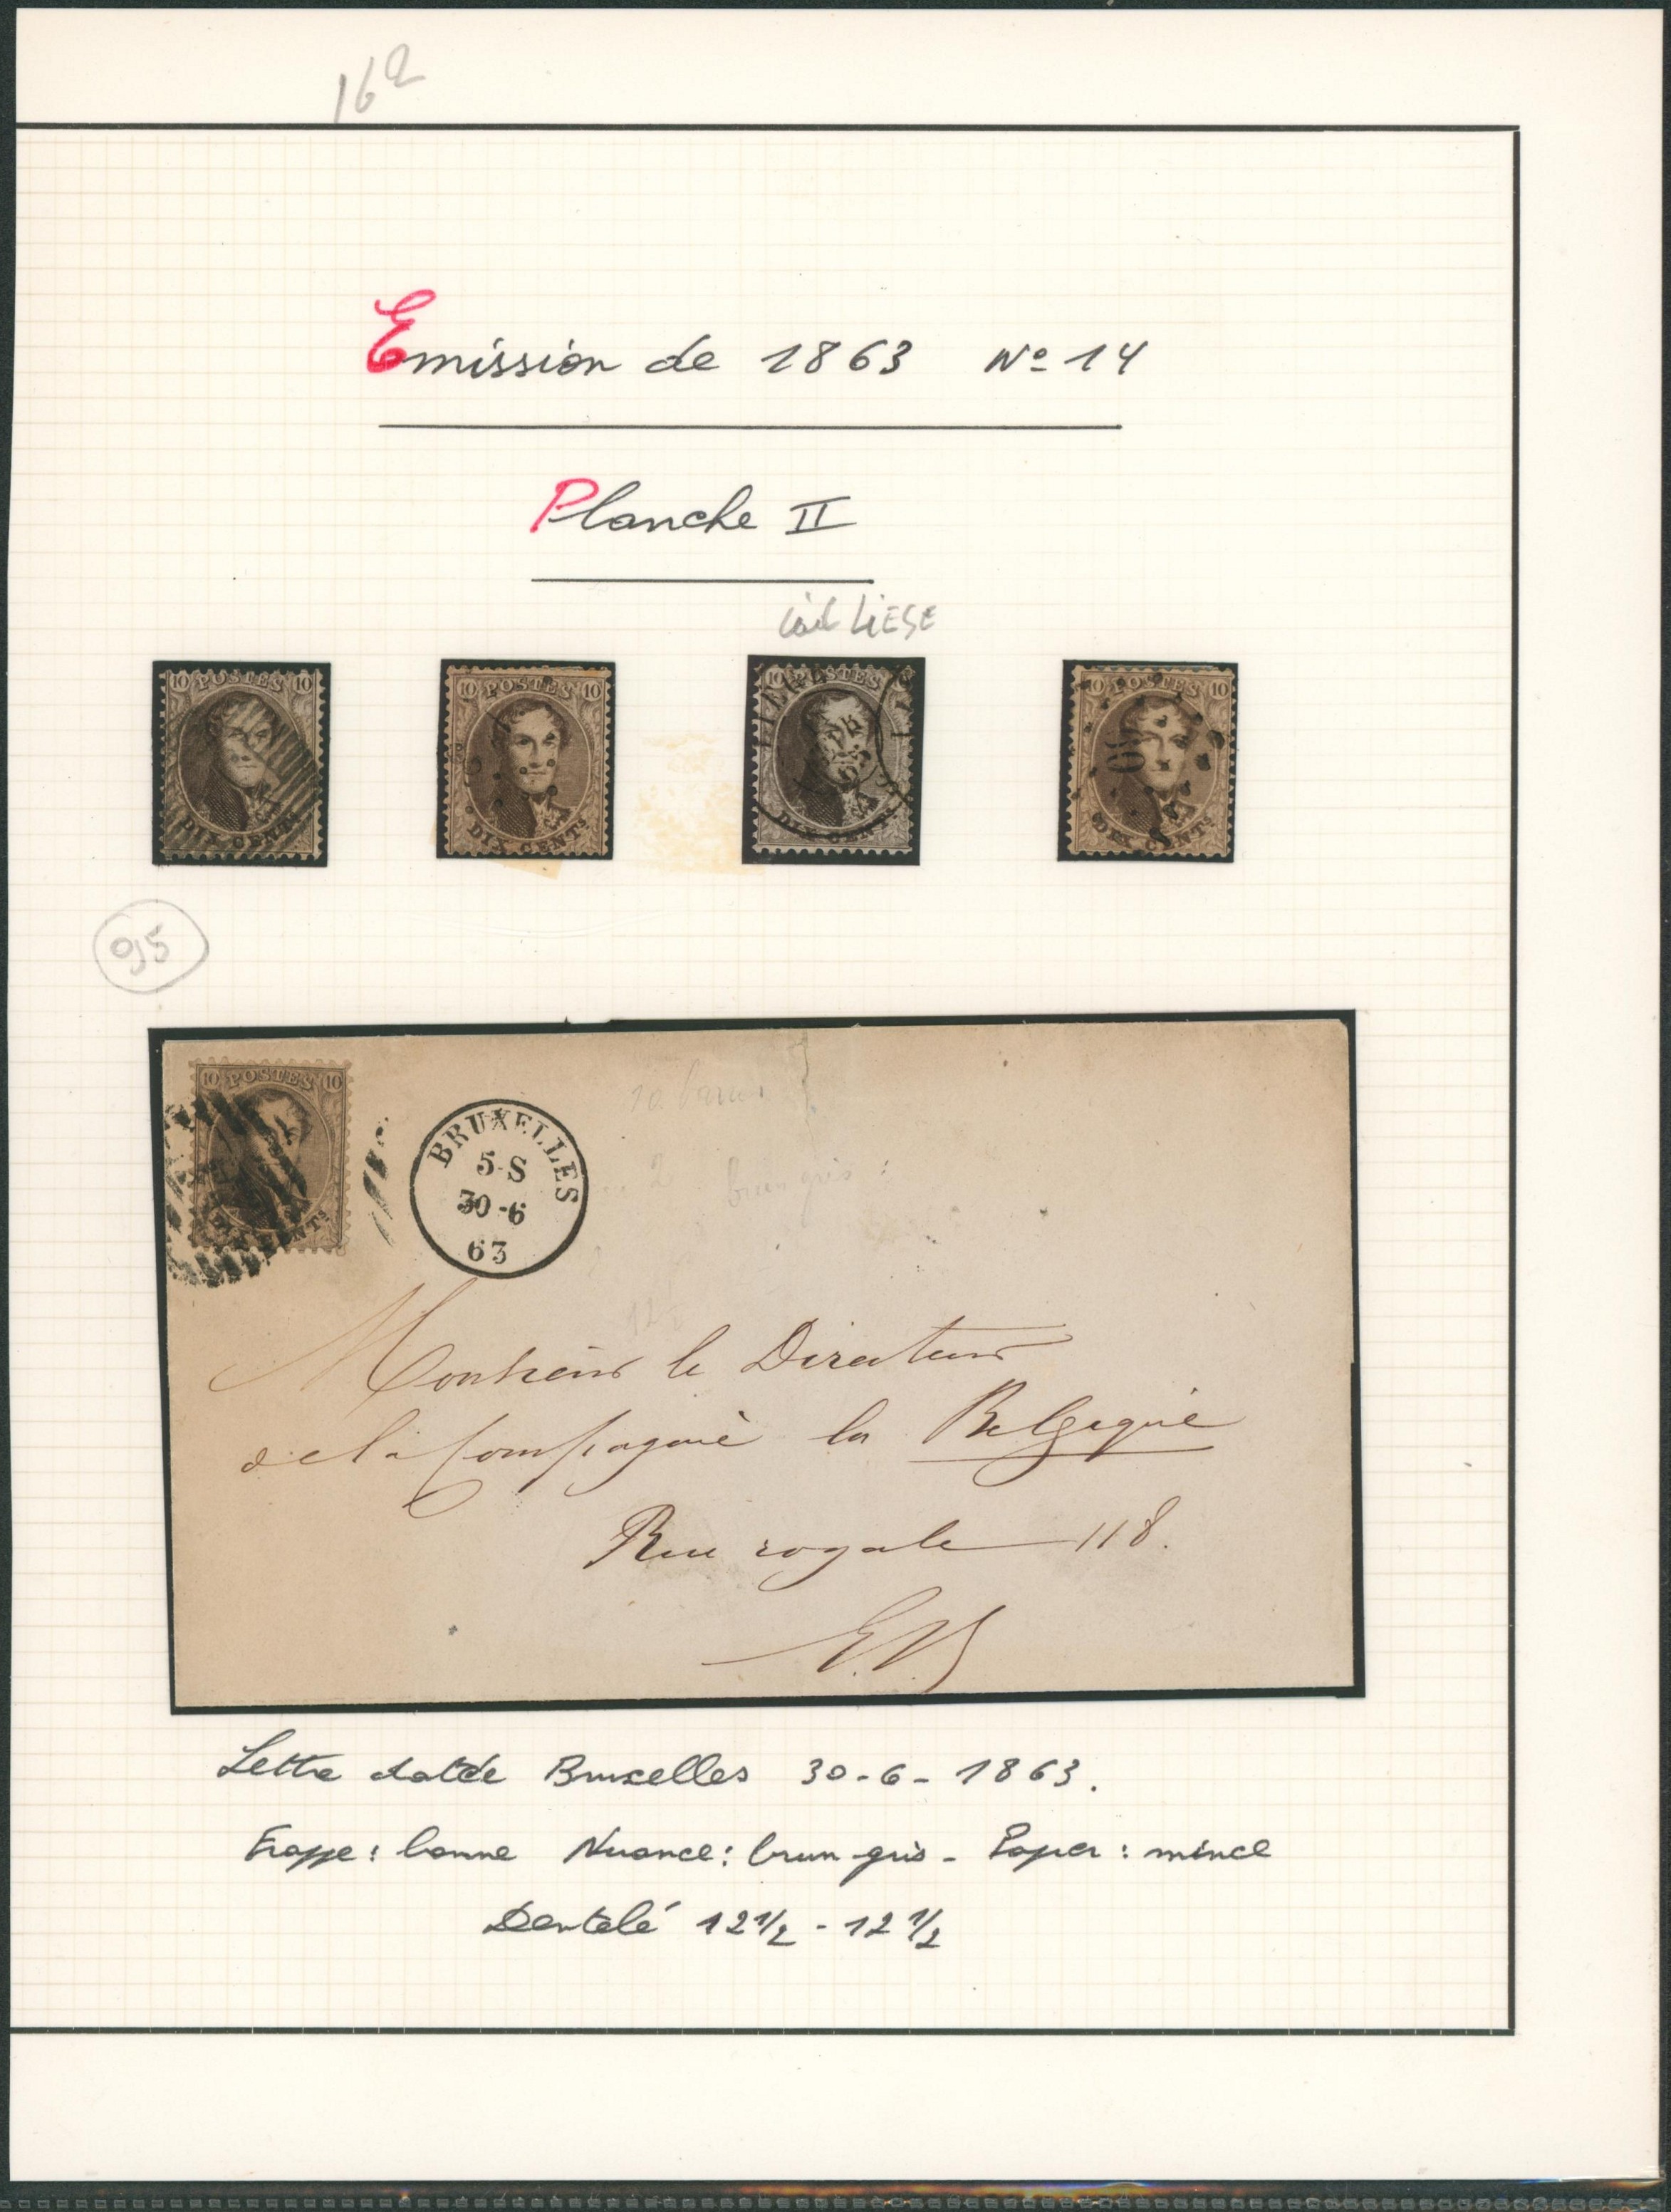 16a
Emission de 1863 Nº 14
Planche II
LIEGE
10 POSTES 10
DIX CENTS
10 POSTES 10
DIX CENTS
10 POSTES 10
DIX CENTS
LIEGE
10 POSTES 10
DIX CENTS
95
10 POSTES 10
BRUXELLES
5-S
30-6
63
2 brun gris
Monsieur le Directeur
de la Compagnie la Belgique
Rue royale 118.
E.V.
Lettre datée Bruxelles 30-6-1863.
Frappe : bonne Nuance : brun-gris - Papier : mince
Dentelé 12½ - 12½